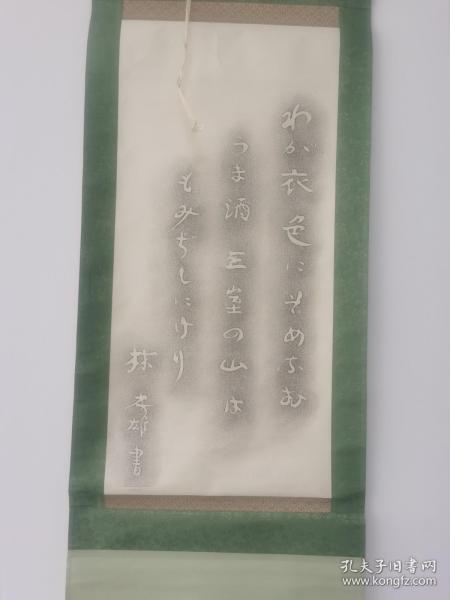 わが衣色にそめなむ
うま酒三室の山は
もみぢしにけり
林房雄書
孔夫子旧书网
www.kongfz.com